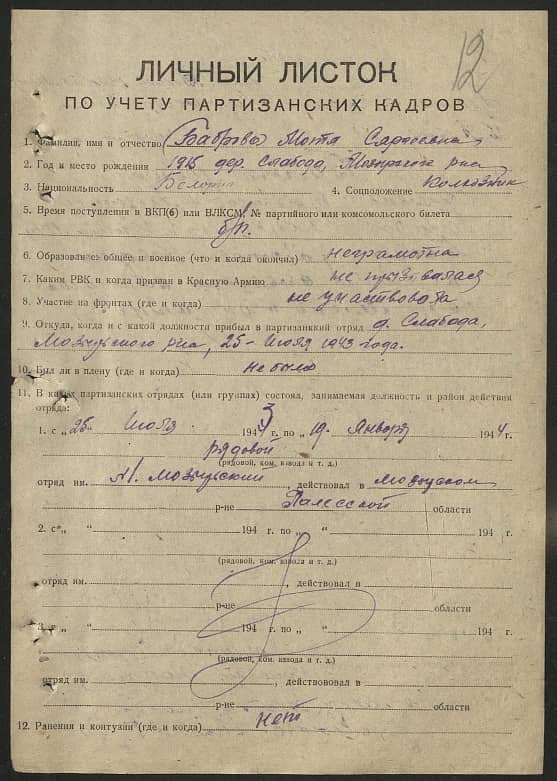 12
ЛИЧНЫЙ ЛИСТОК
ПО УЧЕТУ ПАРТИЗАНСКИХ КАДРОВ
1. Фамилия, имя и отчество Баброва Мотя Сергеевна
2. Год и место рождения 1915 дер. Слабода, р-на
3. Национальность Белорус 4. Соцположение Колхозник
5. Время поступления в ВКП(б) или ВЛКСМ, № партийного или комсомольского билета
б/п.
6. Образование общее и военное (что и когда окончил) неграмотна
7. Каким РВК и когда призван в Красную Армию не призывалася
8. Участие на фронтах (где и когда) не участвовала
9. Откуда, когда и с какой должности прибыл в партизанский отряд д. Слабода,
Мозырского р-на, 25 - Июля 1943 года.
10. Был ли в плену (где и когда) не была
11. В каких партизанских отрядах (или группах) состоял, занимаемая должность и район действия
отряда:
1. с „ 25 - Июля 1943 г. по „ 19 - Января 1944 г.
рядовой
(рядовой, ком. взвода и т. д.)
отряд им. Мозырский, действовал в Мозырском
р-не Палесской области
2. с „ “ 194 г. по „ “ 194 г.
(рядовой, ком. взвода и т. д.)
отряд им. , действовал в
р-не области
3. с „ “ 194 г. по „ “ 194 г.
(рядовой, ком. взвода и т. д.)
отряд им. , действовал в
р-не области
12. Ранения и контузии (где и когда) нет